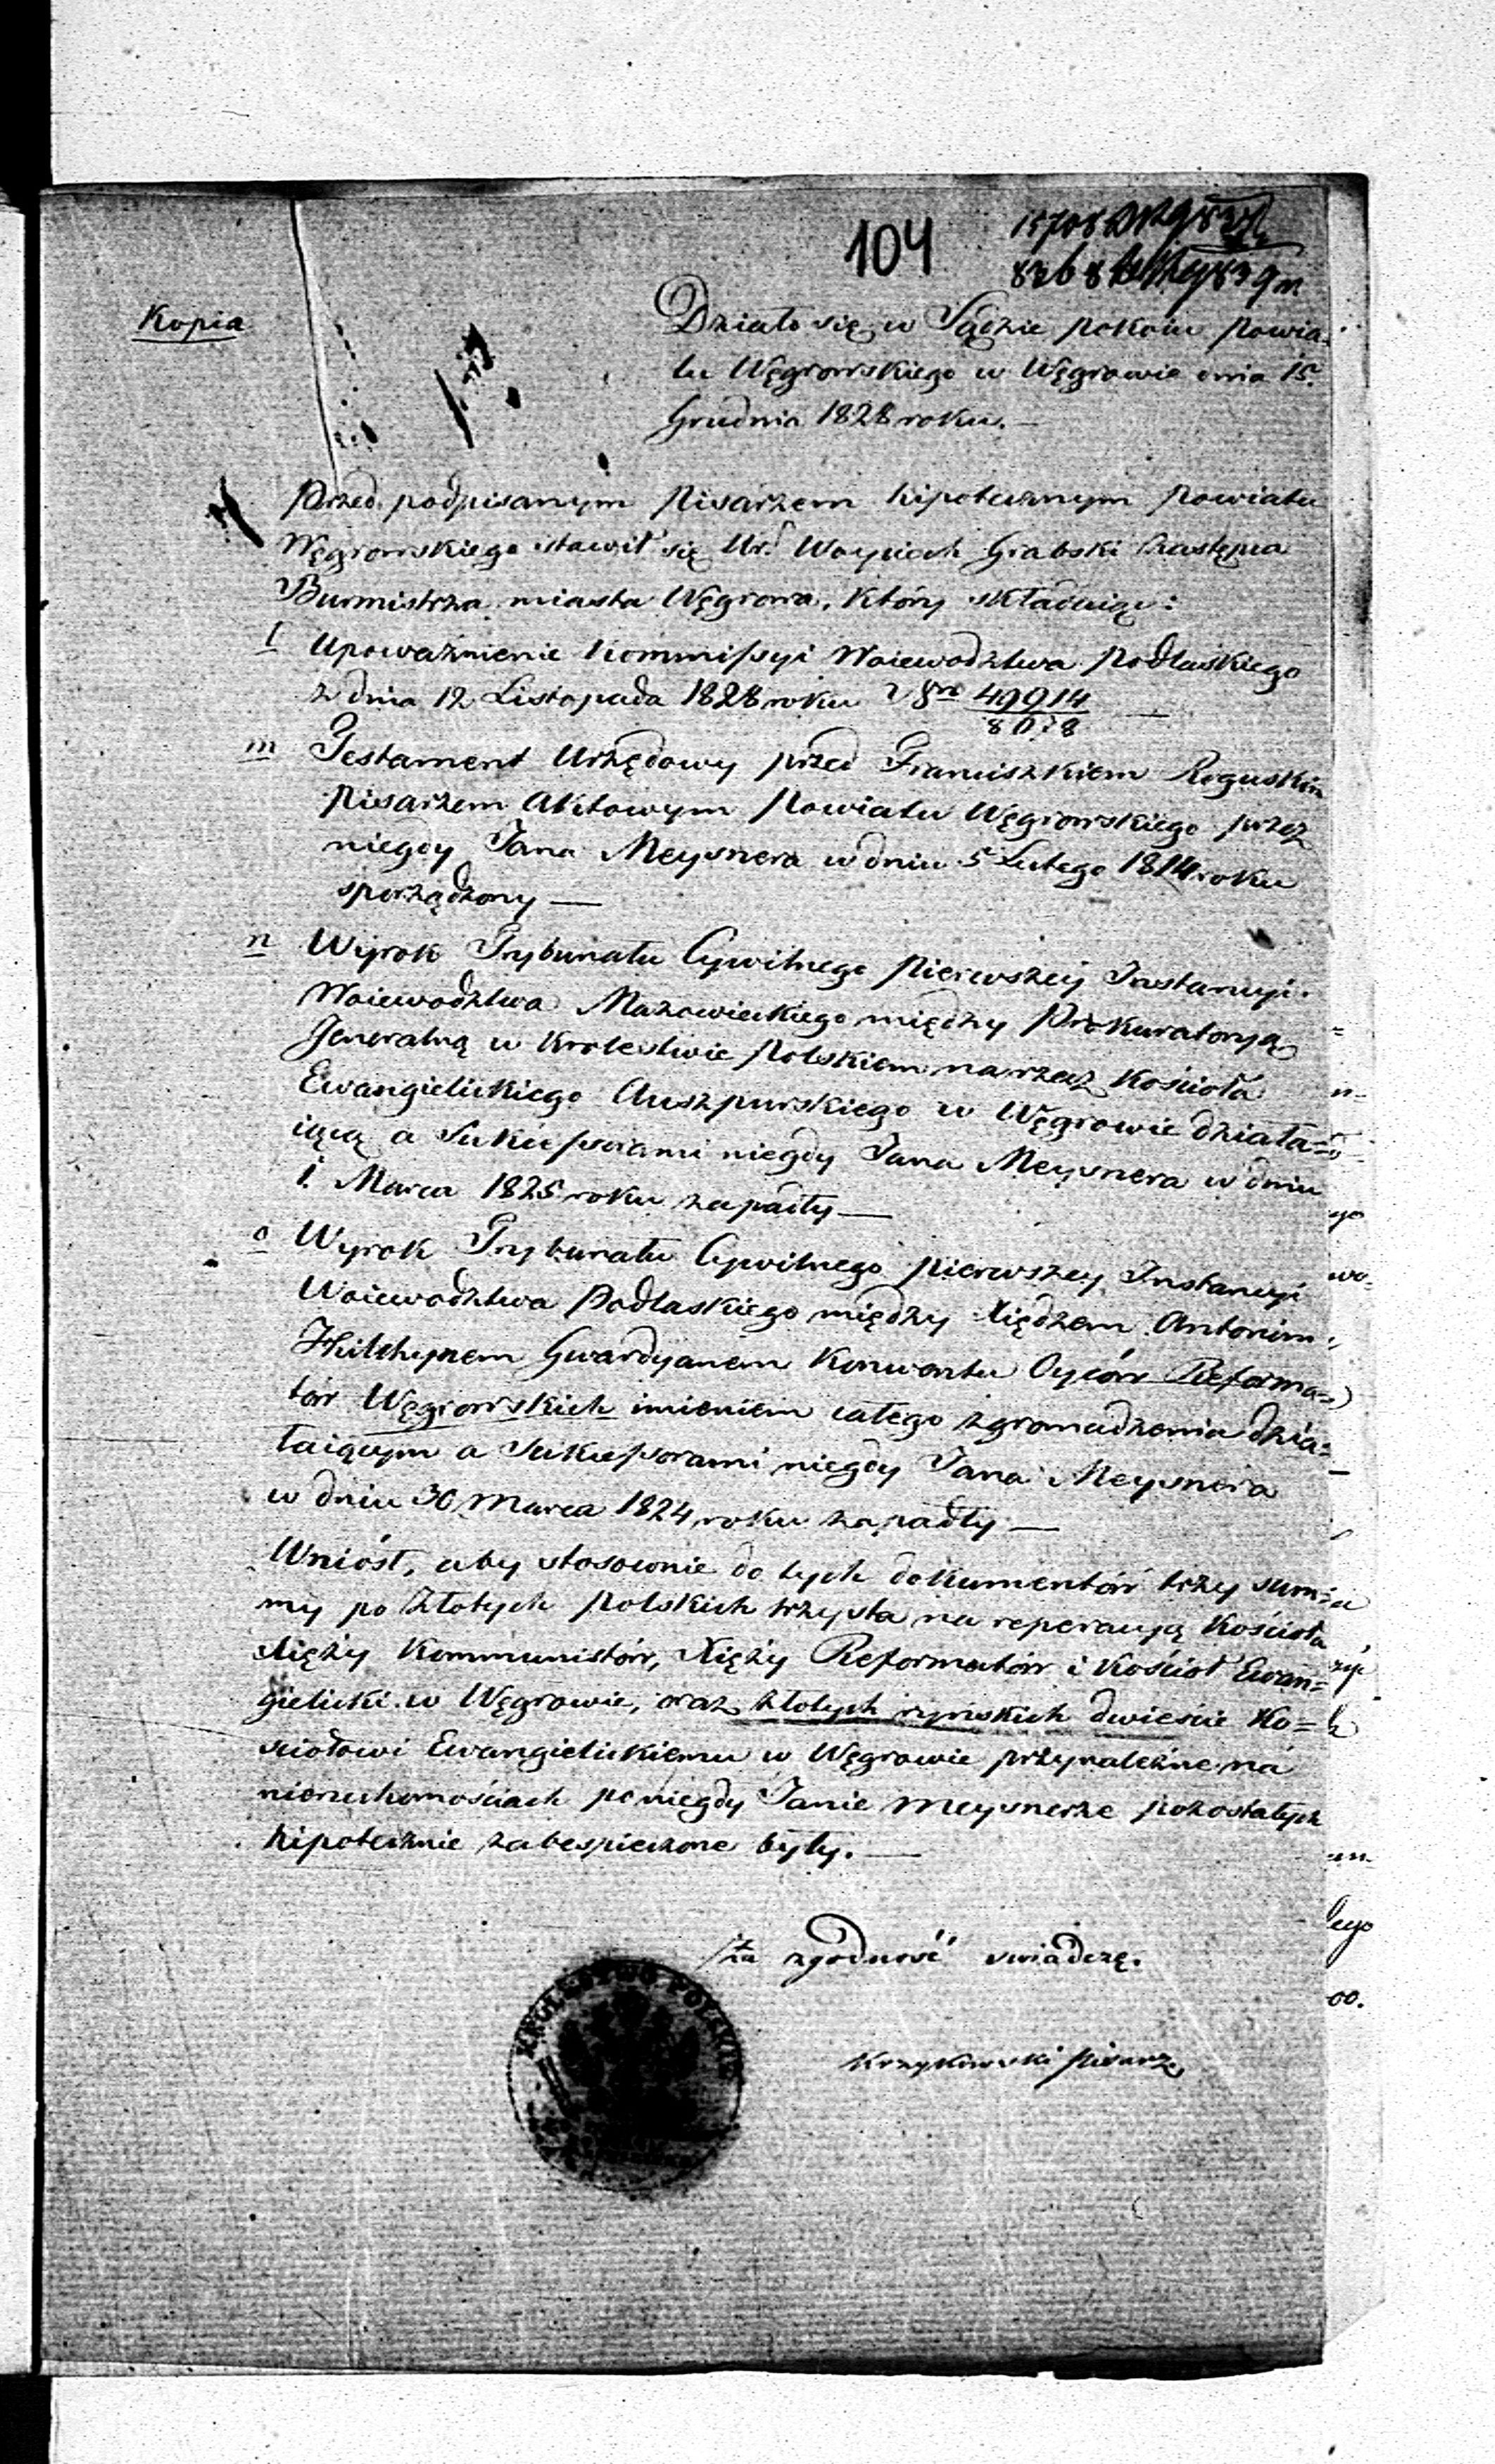 104
Kopia
Działo się w Sądzie pokoiu powia-
tu Węgrowskiego w Węgrowie dnia 15.
Grudnia 1828 roku.—
Przed podpisanym pisarzem hipotecznym powiatu
Węgrowskiego stawił się Ur: Woyciech Grabski Zastępca
Burmistrza miasta Węgrowa, który składaiąc:
l Upoważnienie Kommissyi Woiewodztwa Podlaskiego
z dnia 12 Listopada 1828 roku
49914
8078
m Testament Urzędowy przed Franciszkiem Roguskim
pisarzem Aktowym powiatu Węgrowskiego przez
niegdy Jana Meysnera w dniu 5 Lutego 1814 roku
sporządzony—
n Wyrok Trybunału Cywilnego pierwszey Instancyi
Woiewodztwa Mazowieckiego między Prokuratoryą
Jeneralną w Krolestwie Polskiem na rzecz Kościoła
Ewangielickiego Auszpurskiego w Węgrowie działa=
iącą a Sukcessorami niegdy Jana Meysnera w dniu
1. Marca 1825 roku zapadły—
o Wyrok Trybunału Cywilnego pierwszey Instancyi
Woiewodztwa Podlaskiego między Xiędzem Antonim
Gwardyanem Konwentu Oyców Reforma=
tów Węgrowskich imieniem całego zgromadzenia dzia=
łaiącym a Sukcessorami niegdy Jana Meysnera
w dniu 30 Marca 1824 roku zapadły—
Wniósł, aby stosownie do tych dokumentów trzy sum=
my po złotych polskich trzysta na reperacyą Kościoła
Xięży Kommunistów, Xięży Reformatów i Kościoł Ewan=
gielicki w Węgrowie, oraz złotych rynskich dwieście Ko=
ściołowi Ewangielickiemu w Węgrowie przynależne na
nieruchomościach po niegdy Janie Meysnerze pozostałych
hipotecznie zabespieczone były.—
Za zgodność świadczę.
Krzykowski Pisarz
KRÓLESTWO POLSKIE